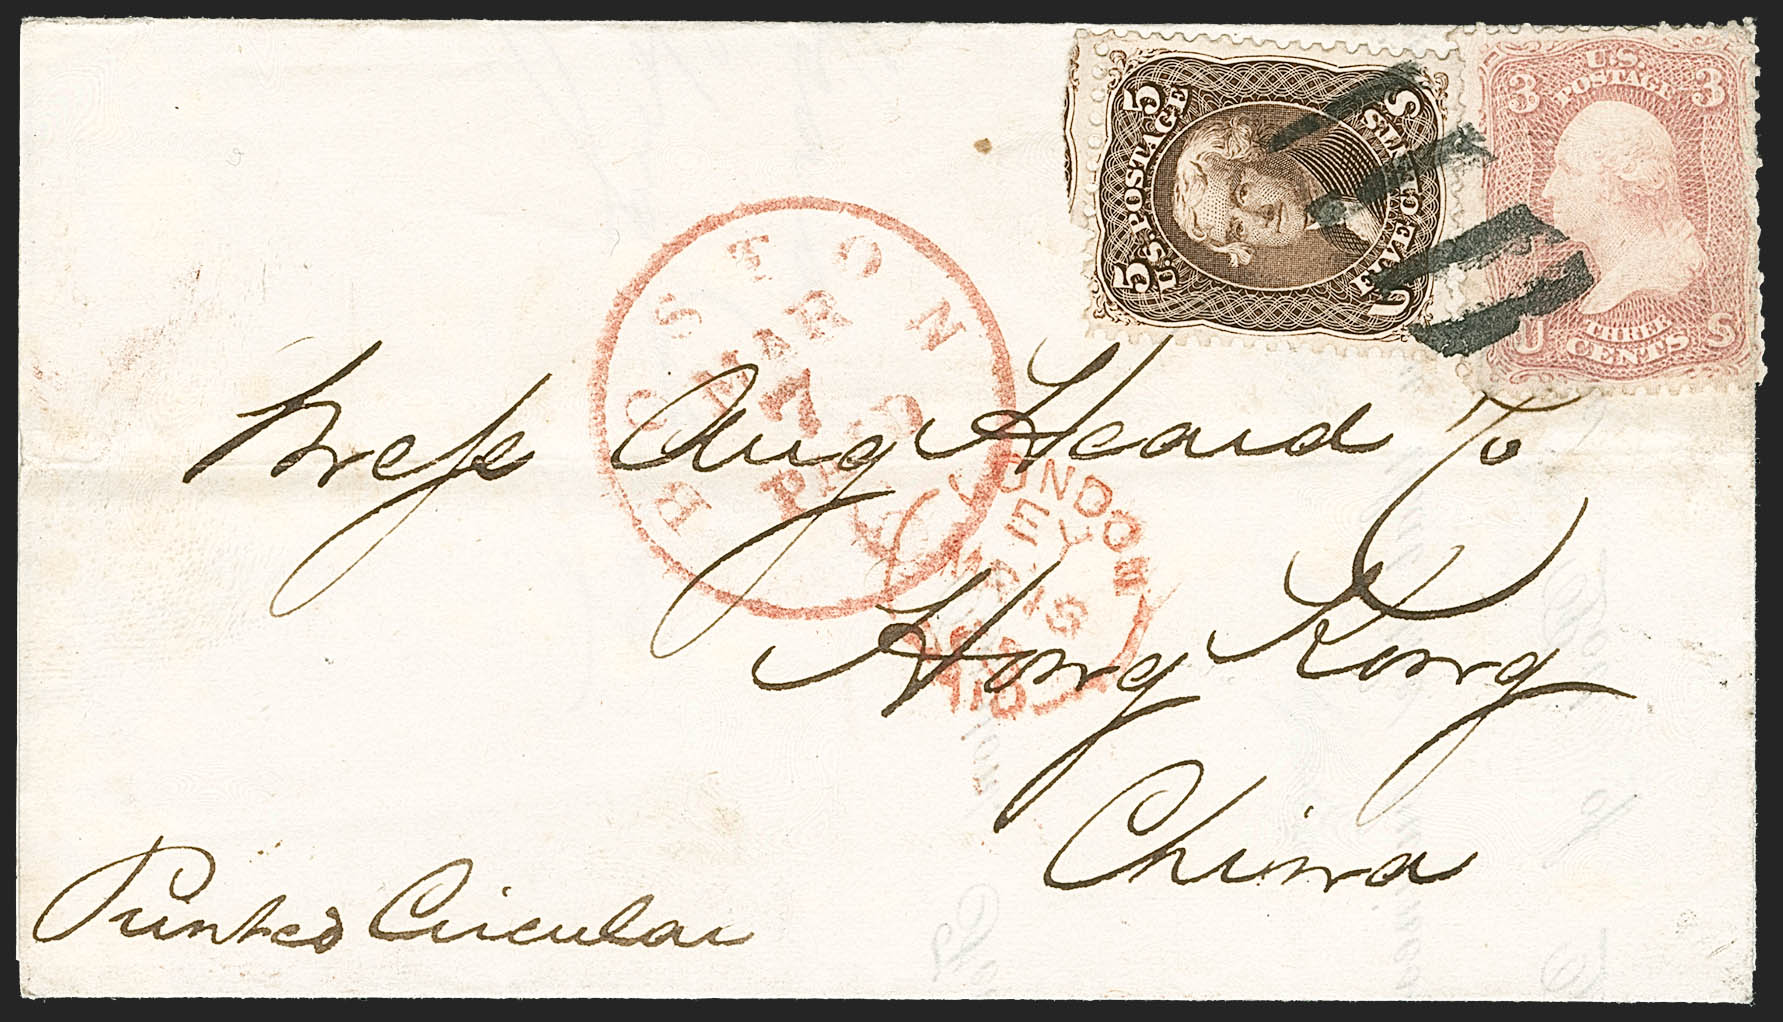 U.S.
POSTAGE
3 3
THREE
CENTS
U S
5 5
U.S. POSTAGE
FIVE CENTS
U S
BOSTON
MAR
7
PAID
Mess Aug Heard Co
LONDON E
PAID
Hong Kong
China
Printed Circular